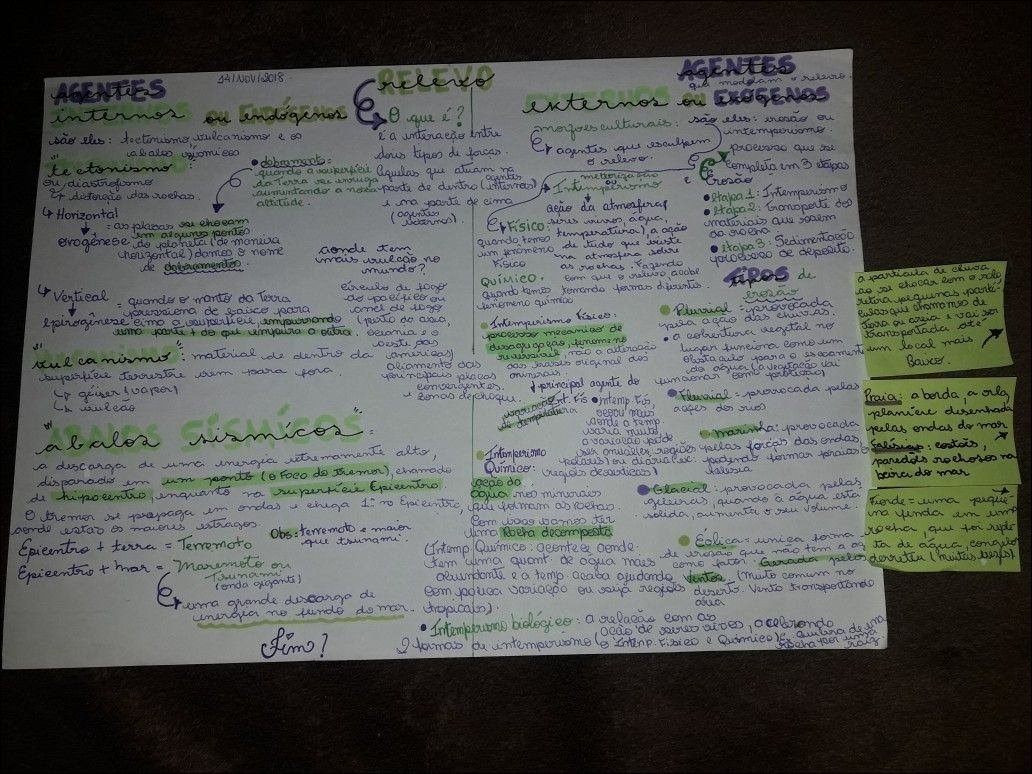 14/NOV/2018.
RELEVO
O que é?
é a interação entre
dois tipos de forças.
Aquelas que atuam na
parte de dentro (agentes internos)
e na parte de cima
(agentes externos)
AGENTES
internos ou ENDÓGENOS
são eles: tectonismo, vulcanismo e os
abalos sísmicos
"tectonismo":
ou diastrofismo
distorção das rochas.
• dobramento =
quando a superfície
da Terra se enruga
aumentando a nossa
altitude.
↳ Horizontal
orogênese
= as placas se chocam
em alguns pontos
do planeta (de maneira
horizontal) damos o nome
de dobramentos.
↳ Vertical
epirogênese
= quando o manto da Terra
pressiona de baixo para
cima a superfície, empurrando
uma parte + do que empurra a outra.
"vulcanismo": material de dentro da
superfície terrestre sem para fora.
↳ gêiser (vapor)
↳ vulcão
aonde tem
mais vulcão no
mundo?
círculo de fogo
do pacífico ou
anel de fogo
(perto da ásia,
oceania e o
oeste das
américas)
principais placas
convergentes.
zonas de choque.
"abalos sísmicos" =
a descarga de uma energia extremamente alta,
disparada em um ponto (o Foco do tremor), chamado
de hipocentro, enquanto na superfície Epicentro.
O tremor se propaga em ondas e chega 1º no Epicentro,
aonde estão os maiores estragos.
Epicentro + terra = Terremoto
Epicentro + mar = Maremoto ou
Tsunami
(onda gigante)
Obs: terremoto e maior
que tsunami.
uma grande descarga de
energia no fundo do mar.
Fim?
AGENTES
que modelam o relevo.
externos ou EXÓGENOS
são eles: erosão ou
intemperismo.
agentes que esculpem
o relevo.
Intemperismo
ação da atmosfera,
seres vivos, água,
temperatura), a ação
de tudo que existe
na atmosfera sobre
as rochas. Fazendo
com que o relevo, acabe
tomando formas diferentes.
FÍSICO:
quando temos
um fenômeno
físico
QUÍMICO.
quando temos
fenômeno químico
e
Erosão
processo que se
completa em 3 etapas
• Etapa 1: Intemperismo
• Etapa 2: Transporte dos
materiais que saem
da rocha
• Etapa 3: Sedimentação
processo de depósito.
• Intemperismo Físico:
processo mecânico de
desagregação, fenômeno
reversível, não a alteração
nas bases original dos
minerais.
principal agente do
int. Fís
variação
de temperatura
• Intemp. Fís,
ocorre mais
aonde a temp.
varia muito,
a variação pode
ser anual (ex. regiões
polares) ou diária (ex.
regiões desérticas)
• Intemperismo
Químico:
ação da
água nos minerais
que formam as rochas.
Com isso vamos ter
uma Rocha decomposta
(Intemp. Químico: acontece aonde
tem uma quant. de água mais
abundante e a temp. acaba ajudando
com pouca variação ou seja regiões
tropicais).
• Intemperismo biológico: a relação com as
ação de seres vivos, acelerando
2 formas de intemperismo (o Intemp. Físico e Químico) Ex: quebra de uma
rocha por uma
raiz
TIPOS de
erosão
• Pluvial: provocada
pela ação das chuvas.
• a cobertura vegetal no
lugar funciona como um
obstáculo para o escoamento
da água (a vegetação vai
funcionar como proteção)
• Fluvial: provocada pelas
ações dos rios
• marinha: provocada
pelas forças das ondas
podendo formar praias ou
falésia
• Glacial: provocada pelas
geleiras, quando a água está
sólida, aumenta o seu volume.
• Eólica = unica forma
de erosão que não tem a água
como fator. Gerada pelos
Ventos (Muito comum no
deserto. Vento transportando
areia
a partícula de chuva
ao se chocar com o solo
retira pequenas partí-
culas que chamamos de
Terra ou areia e vai ser
transportada até
um local mais
Baixo.
Praia: a borda, a orla
planície desenhada
pelas ondas do mar
Falésias: costões,
paredes rochosos na
beira do mar
Fiorde = uma peque-
na fenda em uma
rocha, que foi reple-
ta de água, congelou
derreteu (muitas vezes)